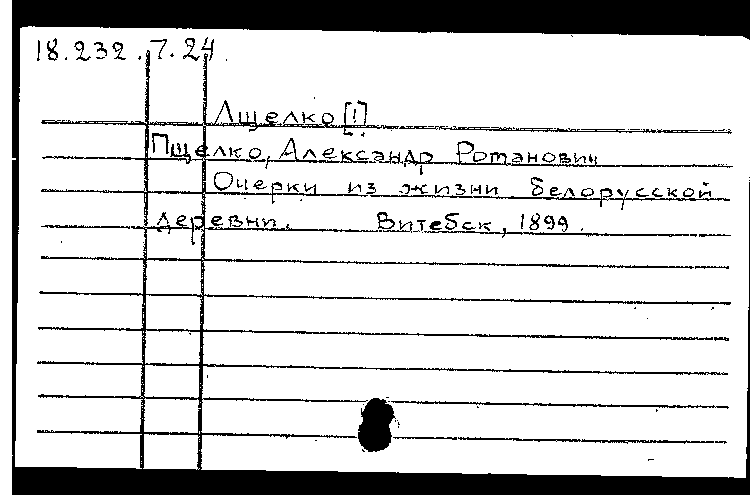 18.232.7.24.
Лщелко [!]
Пщелко, Александр Романович
Очерки из жизни белорусской
деревни. Витебск, 1899.